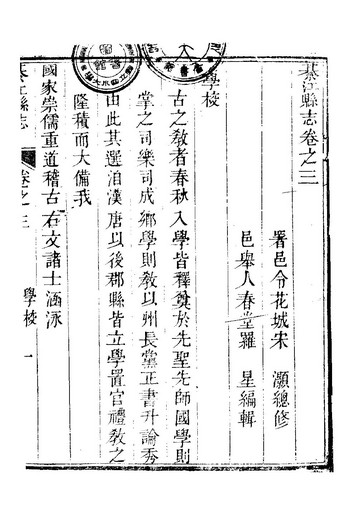 綦江縣志卷之三
署邑令花城宋灝總修
邑舉人春堂羅星編輯
學校
古之敎者春秋入學皆釋奠於先聖先師國學則
掌之司樂司成鄉學則敎以州長黨正書升論秀
由此其選洎漢唐以後郡縣皆立學置官禮敎之
隆積而大備我
國家崇儒重道稽古右文諸士涵泳
綦江縣志 卷之三 學校 一